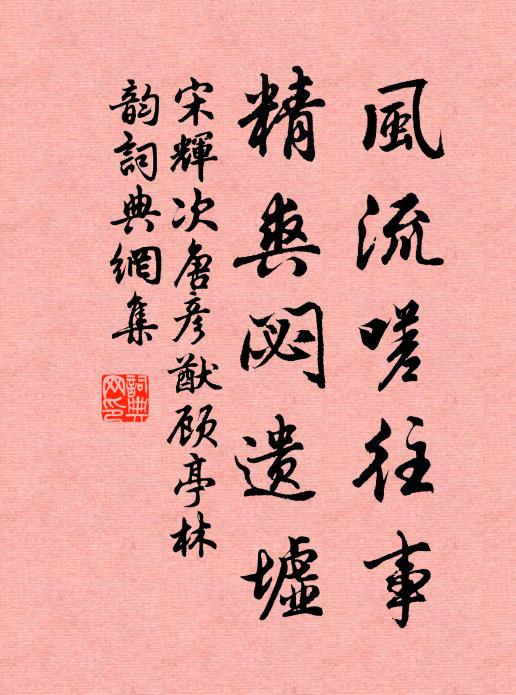 風流嗟往事
精爽閟遺墟
宋輝次唐彥猷顾亭林
韵詞典網集
詞典网印